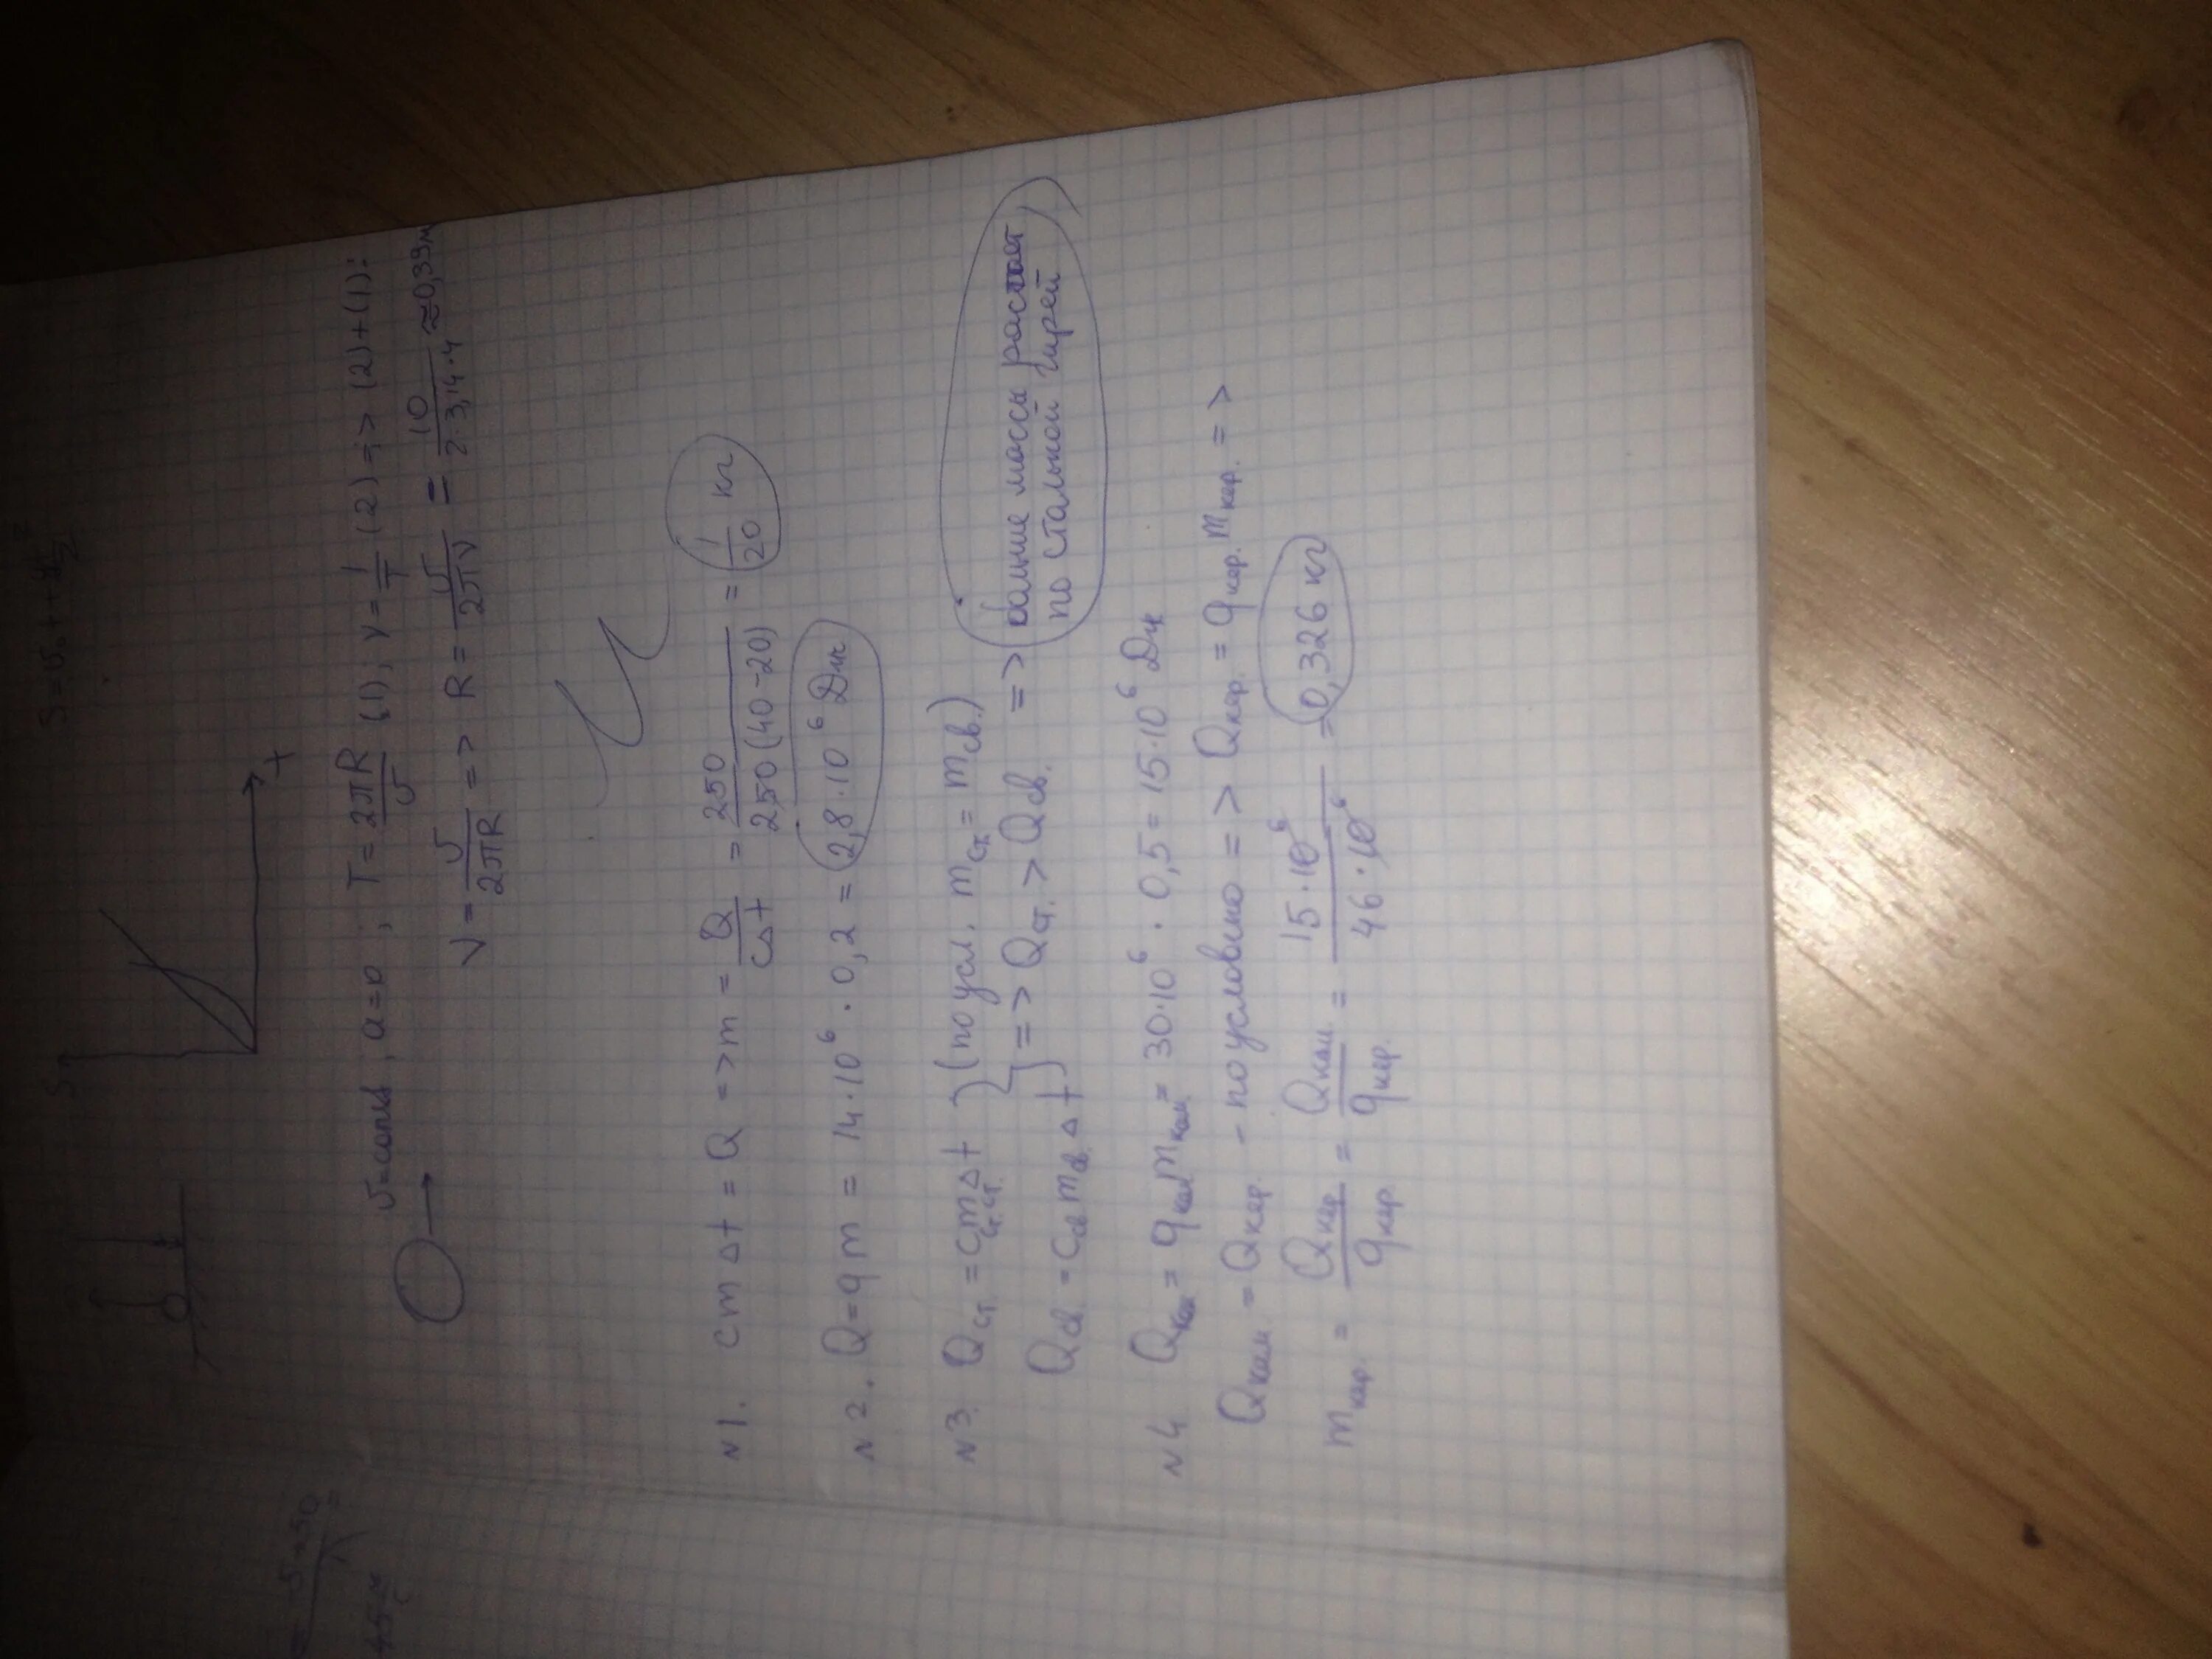 S
t
υ=const, a=0 ; T = 2πR/υ (1) ; ν = 1/T (2) => (2)+(1):
ν = υ/2πR => R = υ/2πν = 10/2·3,14·4 ≈ 0,39м
N 1. cmΔt = Q => m = Q/cΔt = 250/250(40-20) = 1/20 кг
N 2. Q = qm = 14·10⁶ · 0,2 = 2,8·10⁶ Дж
N 3. Qст. = cст. mст. Δt } (по усл. mст = mсв.)
Qсв. = cсв mсв. Δt } => Qст. > Qсв. => больше массы
по стальной гирей
N 4 Qкам = qкам mкам = 30·10⁶ · 0,5 = 15·10⁶ Дж
Qкам. = Qкер. - по условию => Qкер. = qкер. mкер. =>
mкер. = Qкер/qкер. = Qкам/qкер. = 15·10⁶/46·10⁶ = 0,326 кг